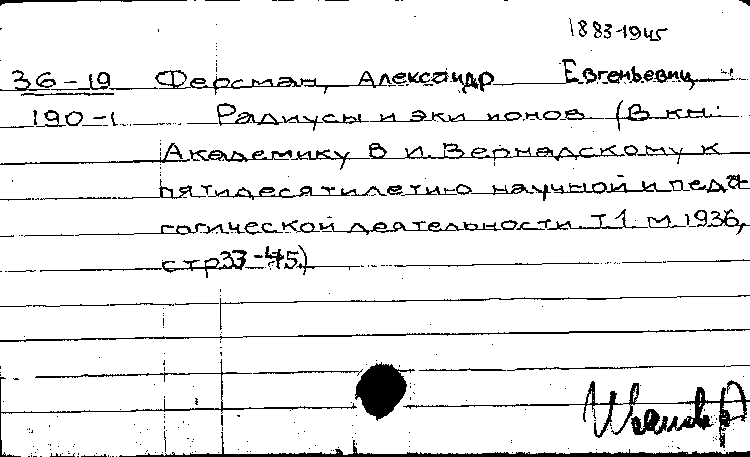 1883-1945
36-19 Ферсман, Александр Евгеньевич
190-1 Радиусы и эки ионов (В кн:
Академику В И. Вернадскому к
пятидесятилетию научной и педа
гогической деятельности. Т.1. М 1936,
стр 33-45.)